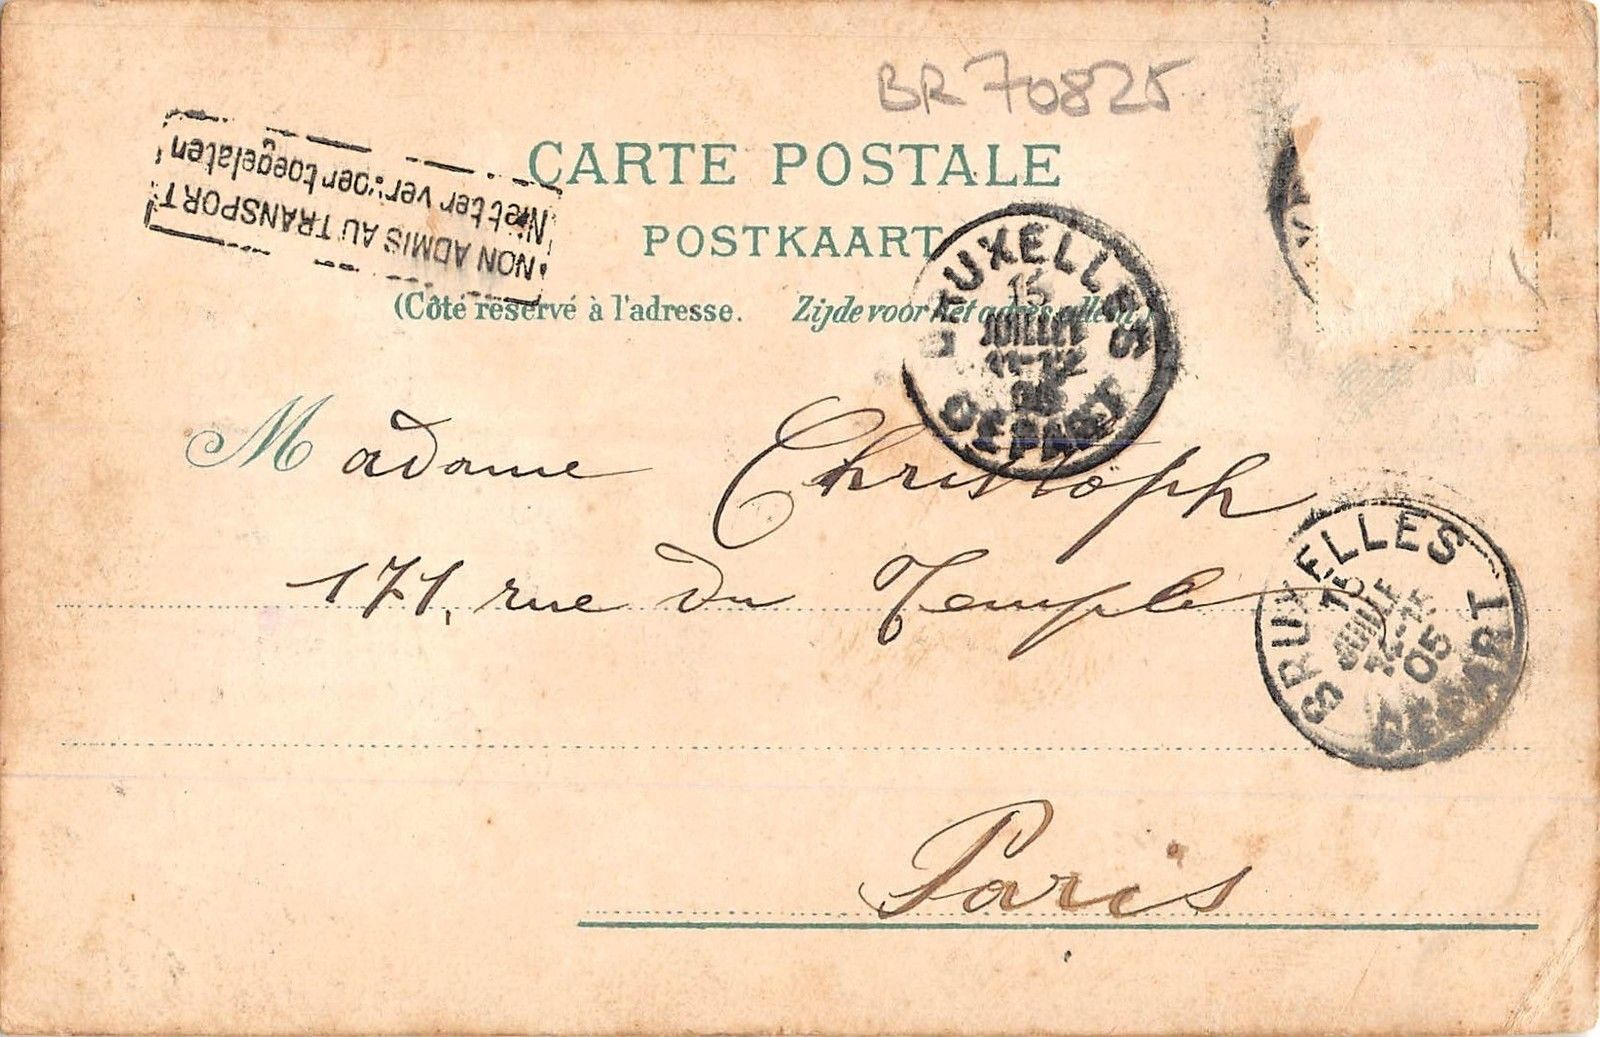 BR 70825
CARTE POSTALE
POSTKAART
(Côté réservé à l'adresse. Zijde voor het adres alleen.)
NON ADMIS AU TRANSPORT
Niet ter vervoer toegelaten
BRUXELLES
15
JUILLET
11-12
05
DEPART
Madame Christoph
171, rue du Temple
BRUXELLES
15
JUILLE
05
DEPART
Paris